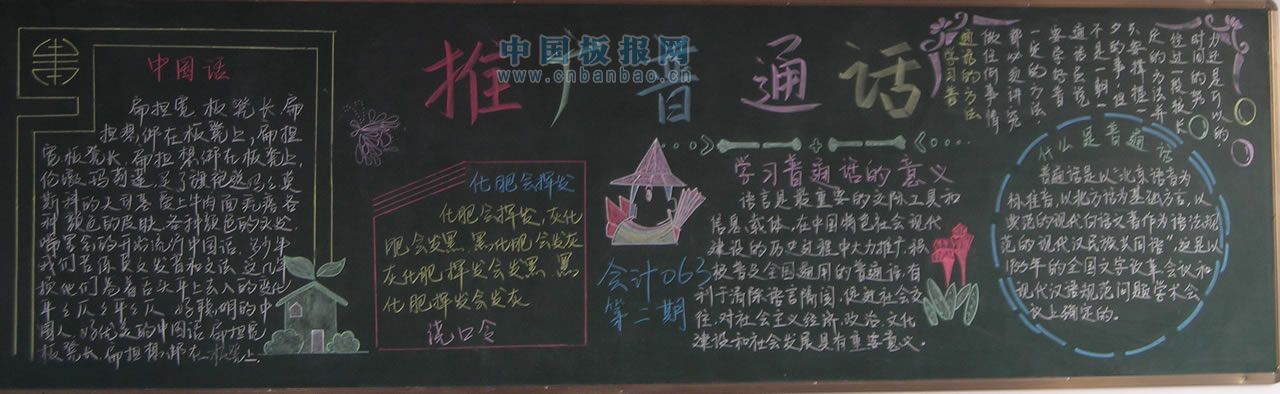 中国板报网
www.cnbanbao.cn
推广普通话
中国话
扁担宽 板凳长 扁
担想绑在板凳上,扁担
宽板凳长,扁担想绑在板凳上,
伦敦玛莉莲,买了旗袍送妈妈莫
斯科的夫司基爱上牛肉面疙瘩各
种颜色的皮肤,各种颜色的头发,
嘴里念的开始流行中国话,多少年
我们苦练英文发音和文法 这几年
换他们卷着舌头学
平上去入的变化
平平仄仄平平仄 好聪明的中
国人 好优美的中国话 扁担宽
板凳长 扁担想绑在板凳上
化肥会挥发
化肥会挥发,灰化
肥会发黑,黑化肥会发灰
灰化肥挥发会发黑,黑
化肥挥发会发灰
绕口令
会计063
第二期
学习普通话的意义
语言是最重要的交际工具和
信息载体,在中国特色社会现代
建设的历史过程中大力推广,积
极普及全国通用的普通话,有
利于消除语言隔阂,促进社会交
往,对社会主义经济,政治,文化
建设和社会发展具有重要意义.
学习普
通话的方法
做任何事情
都必须讲究
一定的方法,
学好普
通话
不是一朝一
夕的事,但
只要掌握一
定的方法并
经过一段较长
时间的努
力还是可以的.
什么是普通话
普通话是以“北京语音为
标准音,以北方话为基础方言,以
典范的现代白话文著作为语法规
范的现代汉民族共同语”,这是以
1955年的全国文字改革会议和
现代汉语规范问题学术会
议上确定的.